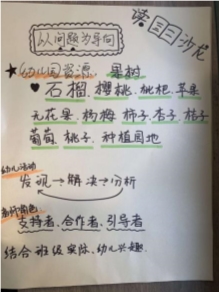 读园沙龙
以问题为导向
★幼儿园资源 果树
♥石榴、樱桃、枇杷、苹果
无花果、杨梅、柿子、杏子、桔子
葡萄、桃子、种植园地
幼儿活动
发现→解决→分析
教师角色
支持者、合作者、引导者
结合班级实际、幼儿兴趣.